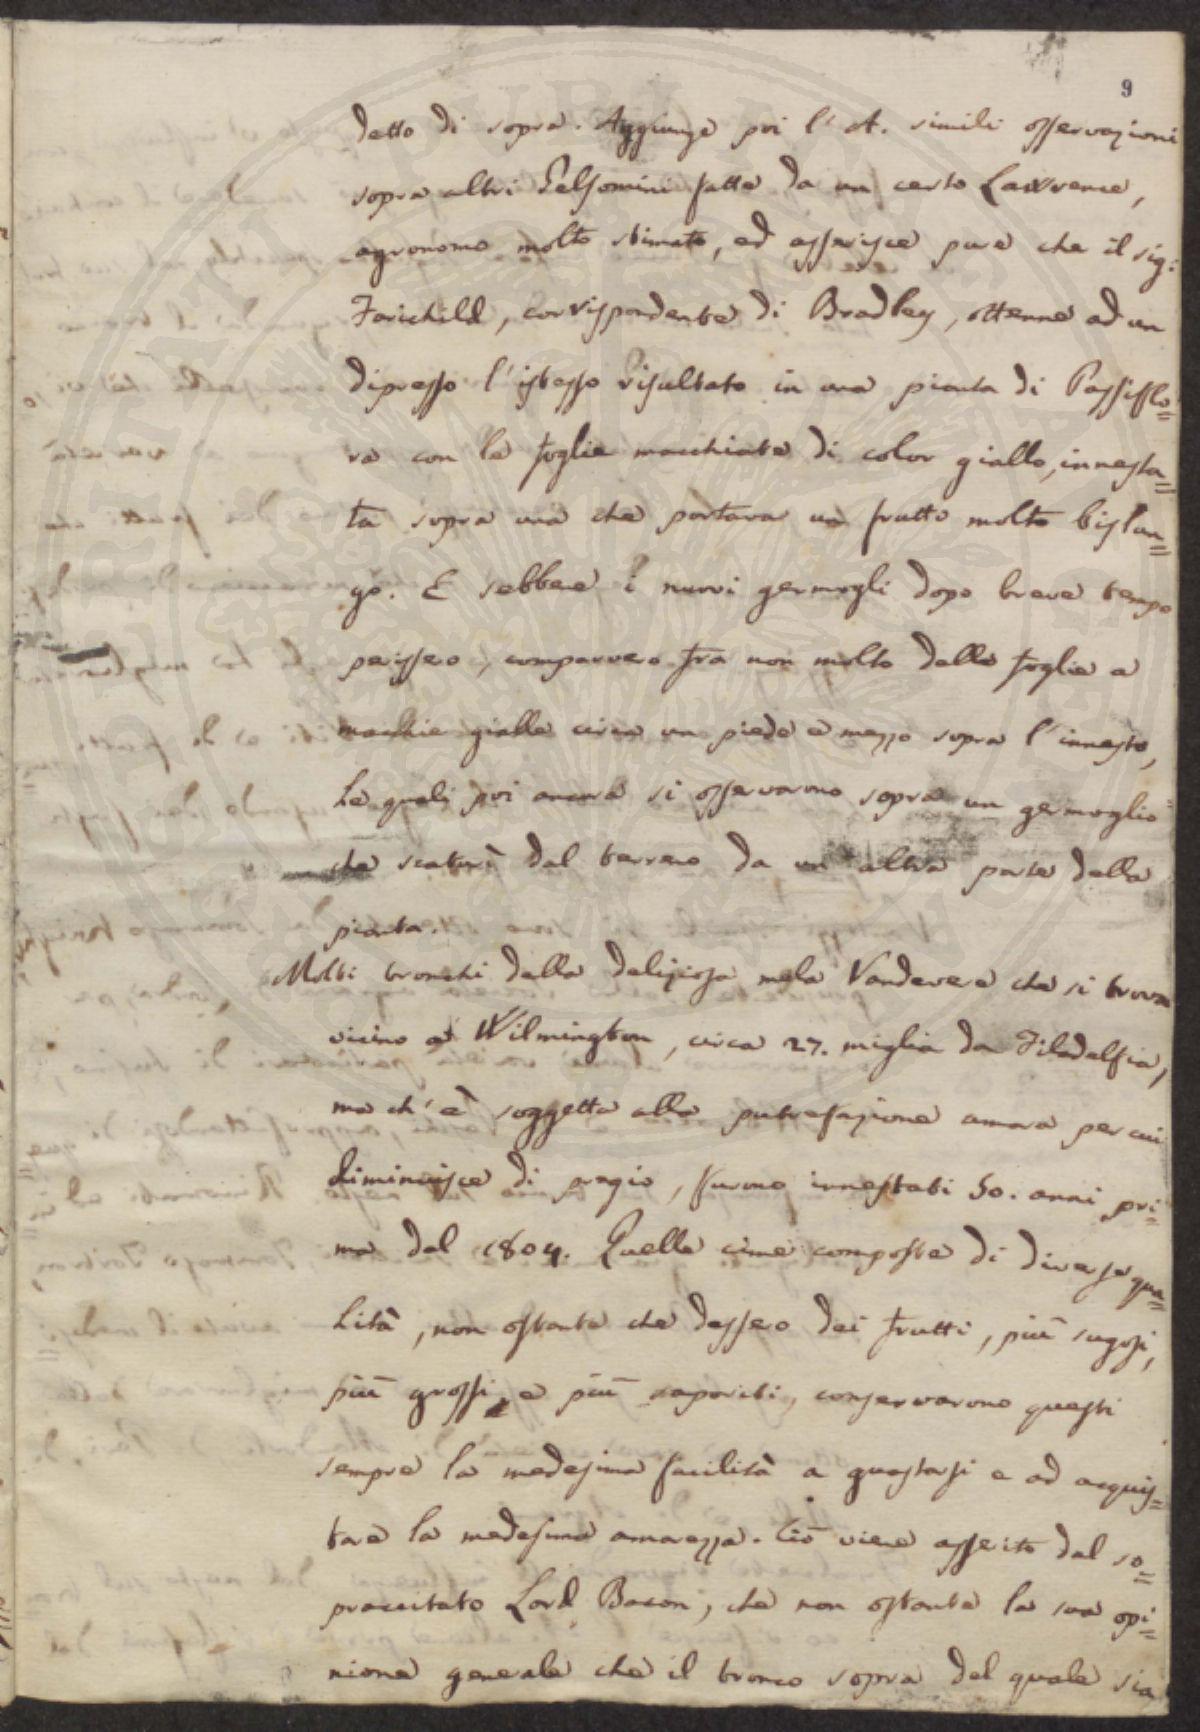 9
detto di sopra. Aggiunge poi l'A. simili osservazioni
sopra altri Gelsomini fatte da un certo Lawrence,
agronomo molto stimato, ed asserisce pure che il sig:
Farichild, corrispondente di Bradley, ottenne ad un
dipresso l'istesso risultato in una pianta di Passiflo=
ra con le foglie macchiate di color giallo, innesta=
ta sopra una che portava un frutto molto bislun=
go. E sebbene i nuovi germogli dopo breve tempo
perissero, comparvero fra non molto delle foglie a
macchie gialle circa un piede e mezzo sopra l'innesto,
Le quali poi ancora si osservarono sopra un germoglio
che scaturì dal terreno da un altra parte della
pianta.
Molti tronchi della deliziosa mela Vandevere che si trova
vicino a Wilmington, circa 27. miglia da Filadelfia,
ma ch'è soggetta alla putrefazione amara per cui
diminuisce di pregio, furono innestati 50. anni pri=
ma del 1804. Quelle cime composte di diverse qua=
lità, non ostante che dessero dei frutti, più sugosi,
più grossi, e più saporiti, conservarono questi
sempre la medesima facilità a guastarsi e ad acquis=
tare la medesima amarezza. Ciò viene asserito dal so=
pracitato Lord Bacon, che non ostante la sua opi=
nione generale che il tronco sopra del quale sia